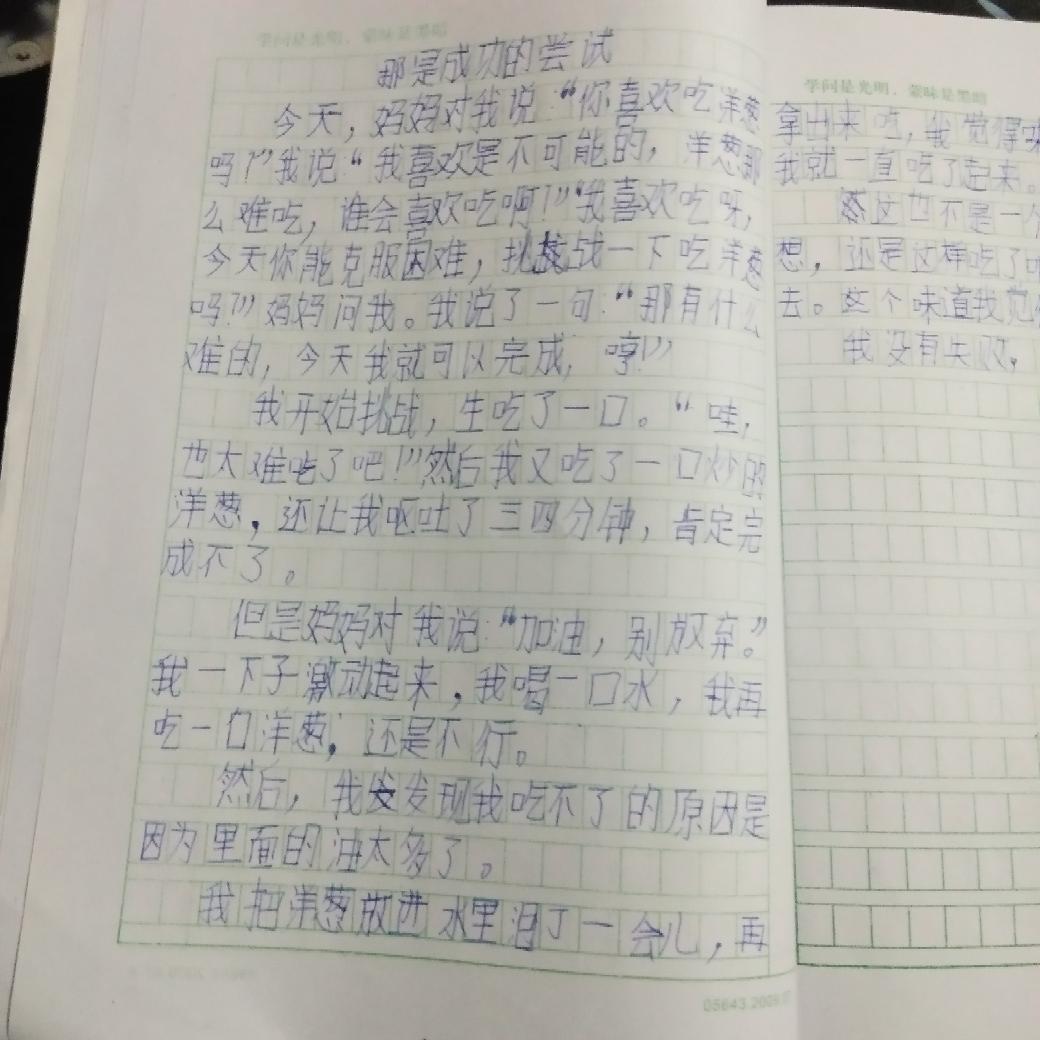 学问是光明,蒙昧是黑暗
那是成功的尝试
今天,妈妈对我说:“你喜欢吃洋葱
吗?”我说“我喜欢是不可能的,洋葱那
么难吃,谁会喜欢吃啊!”“我喜欢吃呀,
今天你能克服困难,挑战一下吃洋葱
吗?”妈妈问我。我说了一句:“那有什么
难的,今天我就可以完成,哼!”
我开始挑战,生吃了一口。“哇,
也太难吃了吧!”然后我又吃了一口炒的
洋葱,还让我呕吐了三四分钟,肯定完
成不了。
但是妈妈对我说:“加油,别放弃。”
我一下子激动起来,我喝一口水,我再
吃一口洋葱,还是不行。
然后,我发现我吃不了的原因是
因为里面的油太多了。
我把洋葱放进水里泡了一会儿,再
05643.2009.07
学问是光明,蒙昧是黑暗
拿出来吃,我觉得味
我就一直吃了起来。
这也不是一个
想,还是这样吃了
去。这个味道我觉
我没有失败,